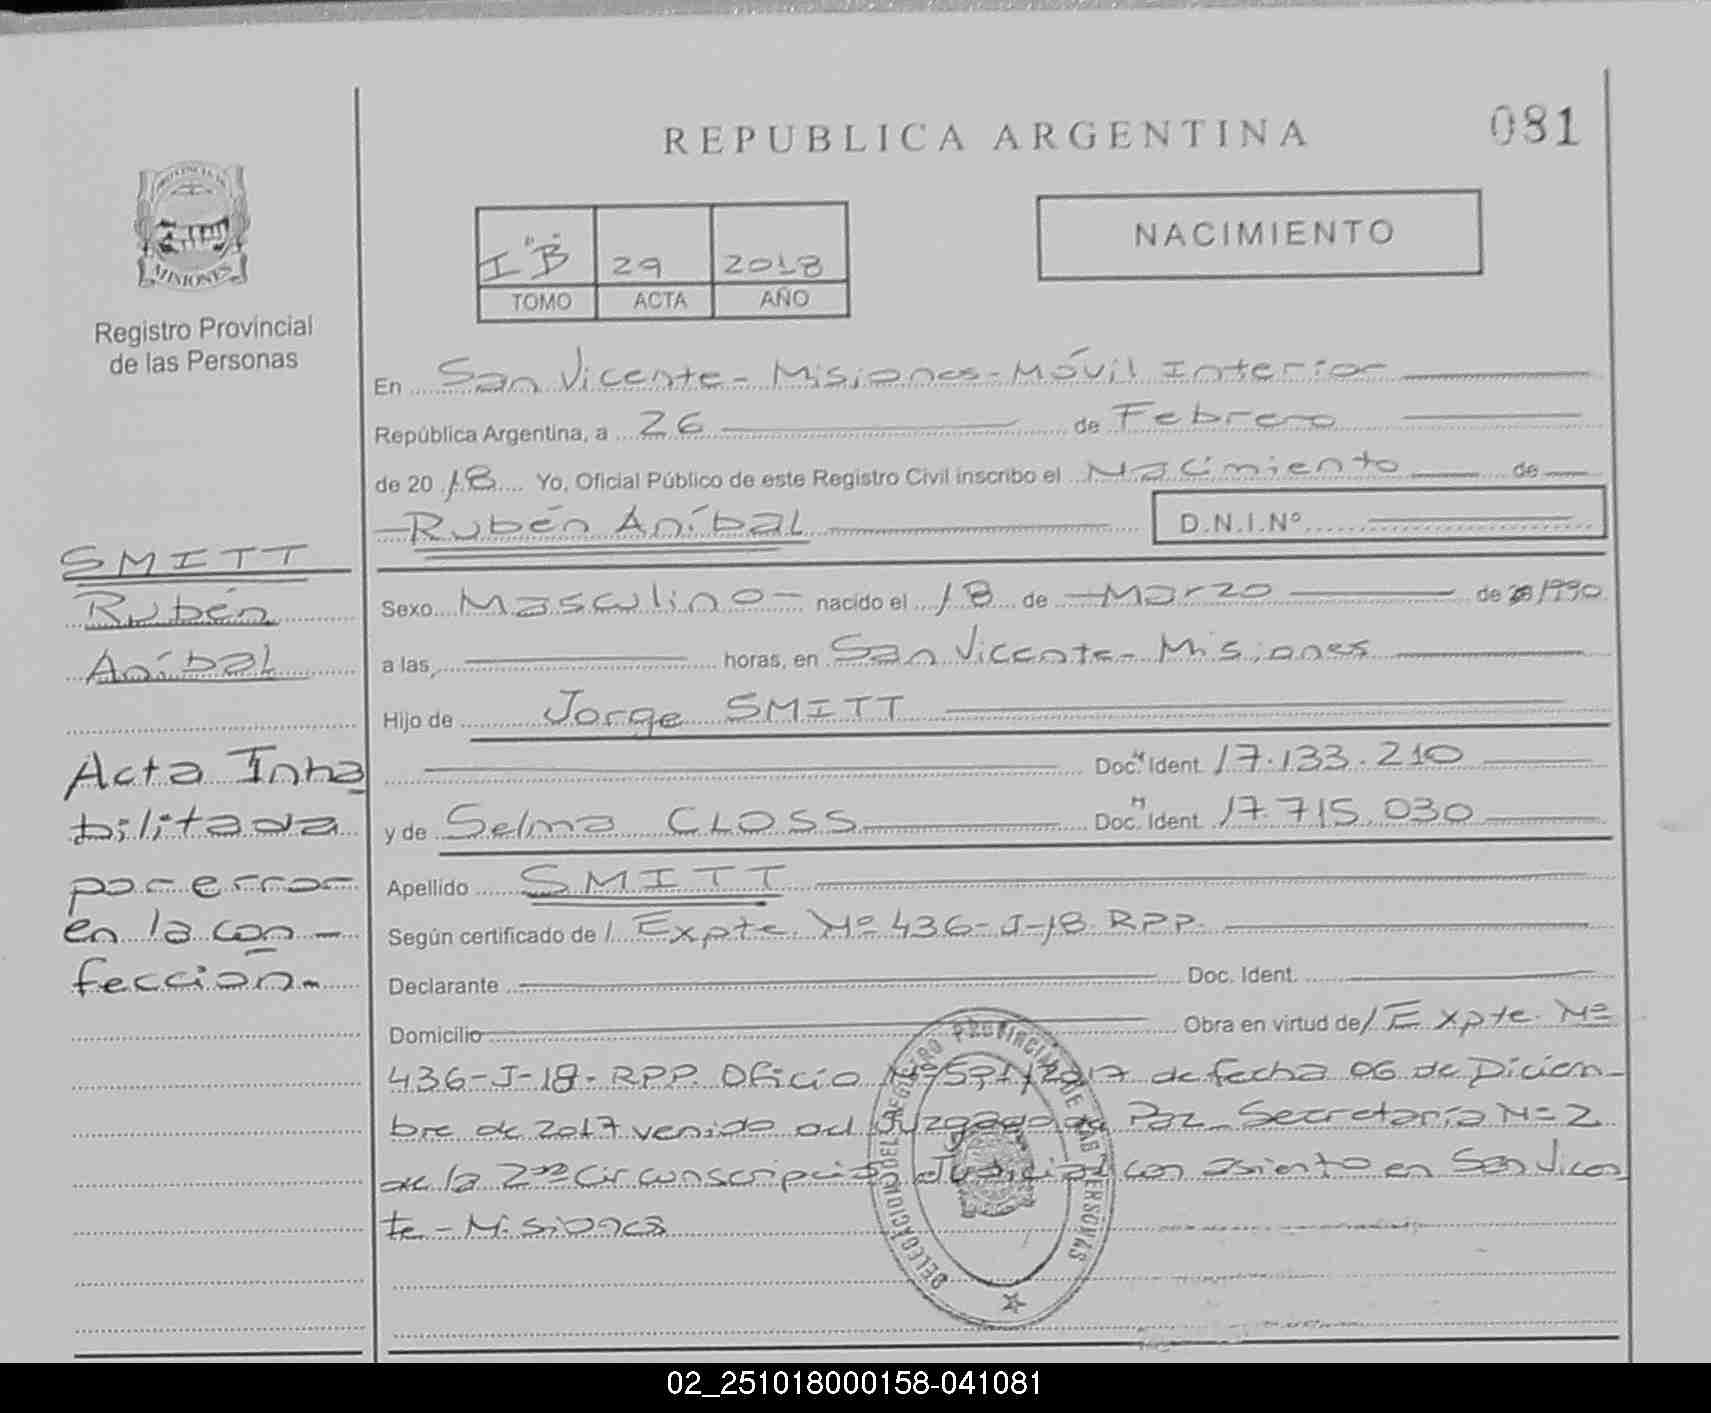 REPUBLICA ARGENTINA
081
PROVINCIA DE
MISIONES
Registro Provincial
de las Personas
I "B" 29 2018
TOMO ACTA AÑO
NACIMIENTO
En San Vicente - Misiones - Móvil Interior
República Argentina, a 26 de Febrero
de 2018 Yo, Oficial Público de este Registro Civil inscribo el Nacimiento de
Rubén Aníbal D.N.I.Nº
SMITT
Rubén
Aníbal
Acta Inha
bilitada
por error
en la con -
fección -
Sexo Masculino - nacido el 18 de Marzo de 1990
a las horas, en San Vicente - Misiones
Hijo de Jorge SMITT
Doc. Ident. 17.133.210
y de Selma CLOSS Doc. Ident. 17.715.030
Apellido SMITT
Según certificado de / Expte. Nº 436-J-18 RPP.
Declarante Doc. Ident.
Domicilio Obra en virtud de / Expte. Nº
436-J-18- RPP. Oficio Nº /2017 de fecha 06 de Diciem-
bre de 2017 venido del Juzgado de Paz - Secretaría Nº 2
de la 2da Circunscripción Judicial con asiento en San Vicen
te - Misiones
DELEGACION DEL REGISTRO PROVINCIAL DE LAS PERSONAS
02_251018000158-041081